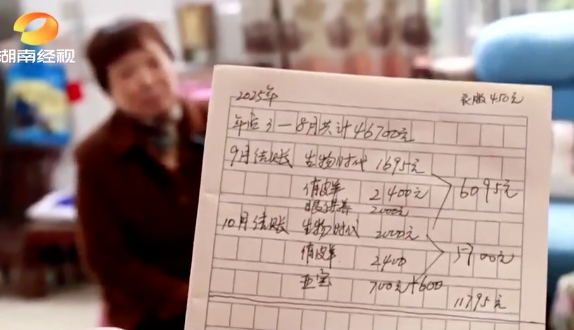 湖南经视
2025年 衣服450元
年底3—8月共计46700元
9月结账 生物时代 1695元
俏皮羊 2400元 6095元
眼 2000元
10月结账 生物时代 2000元
俏皮羊 2400 5700元
700元+600
11795元